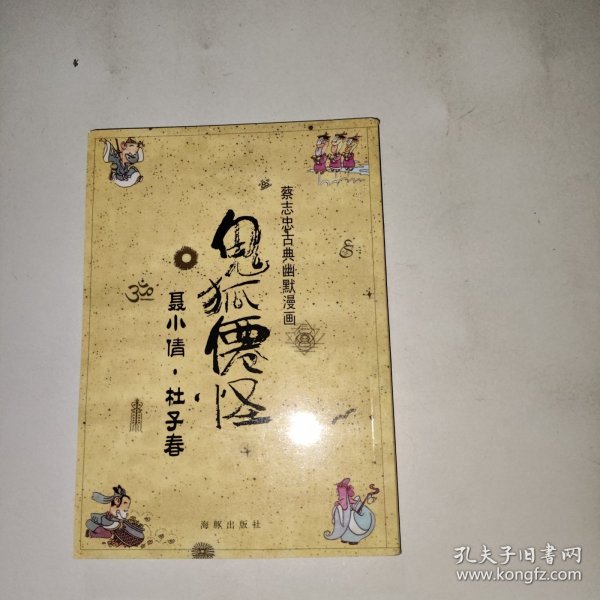 蔡志忠古典幽默漫画
鬼狐僊怪
聂小倩·杜子春
海豚出版社
孔夫子旧书网
www.kongfz.com